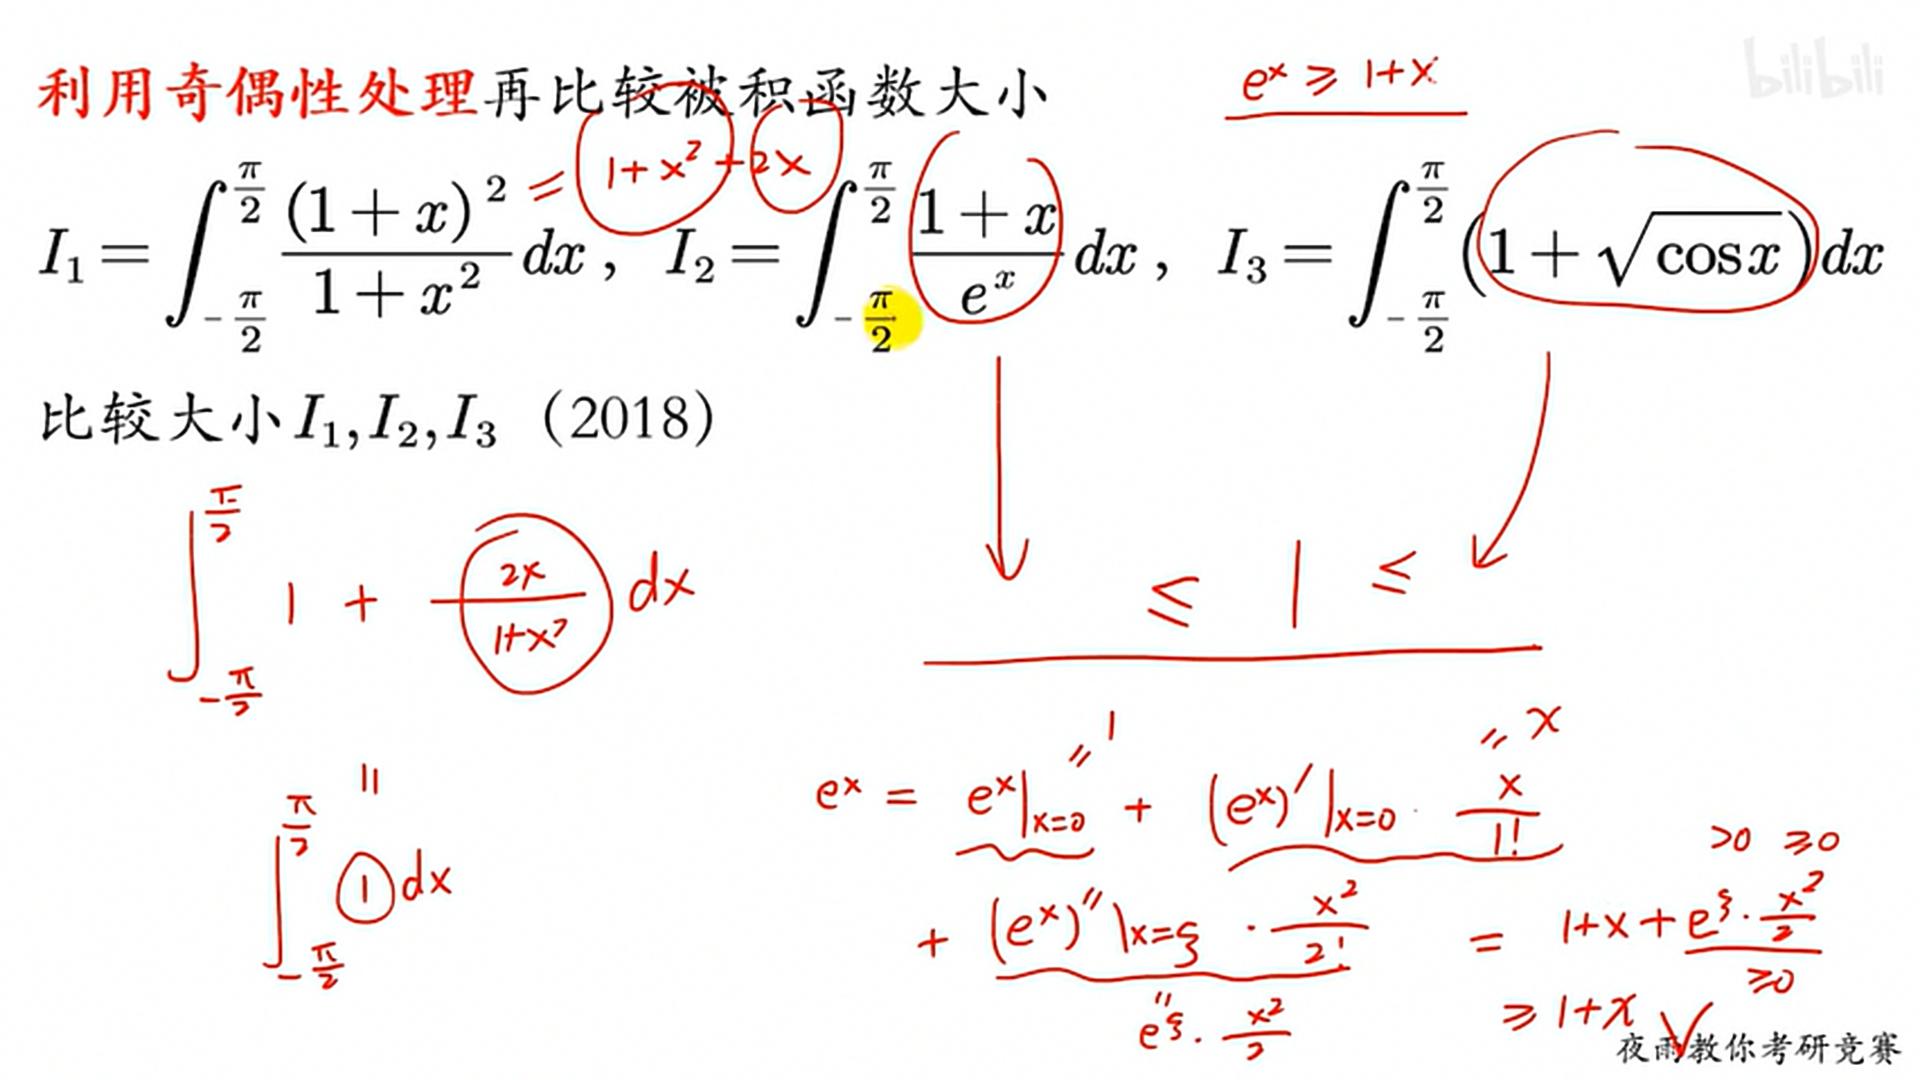 利用奇偶性处理再比较被积函数大小
e^x ≥ 1+x
bilibili
= 1+x² + 2x
I₁ = ∫_{-π/2}^{π/2} (1+x)²/(1+x²) dx , I₂ = ∫_{-π/2}^{π/2} (1+x)/e^x dx , I₃ = ∫_{-π/2}^{π/2} (1+√cosx) dx
比较大小I₁,I₂,I₃（2018）
∫_{-π/2}^{π/2} 1 + 2x/(1+x²) dx
≤ 1 ≤
= ∫_{-π/2}^{π/2} 1 dx
= 1
= x
e^x = e^x|_{x=0} + (e^x)'|_{x=0} · x/1!
+ (e^x)''|_{x=ξ} · x²/2!
= e^ξ · x²/2
>0 ≥0
= 1+x+e^ξ · x²/2
≥0
≥ 1+x ✓
夜雨教你考研竞赛